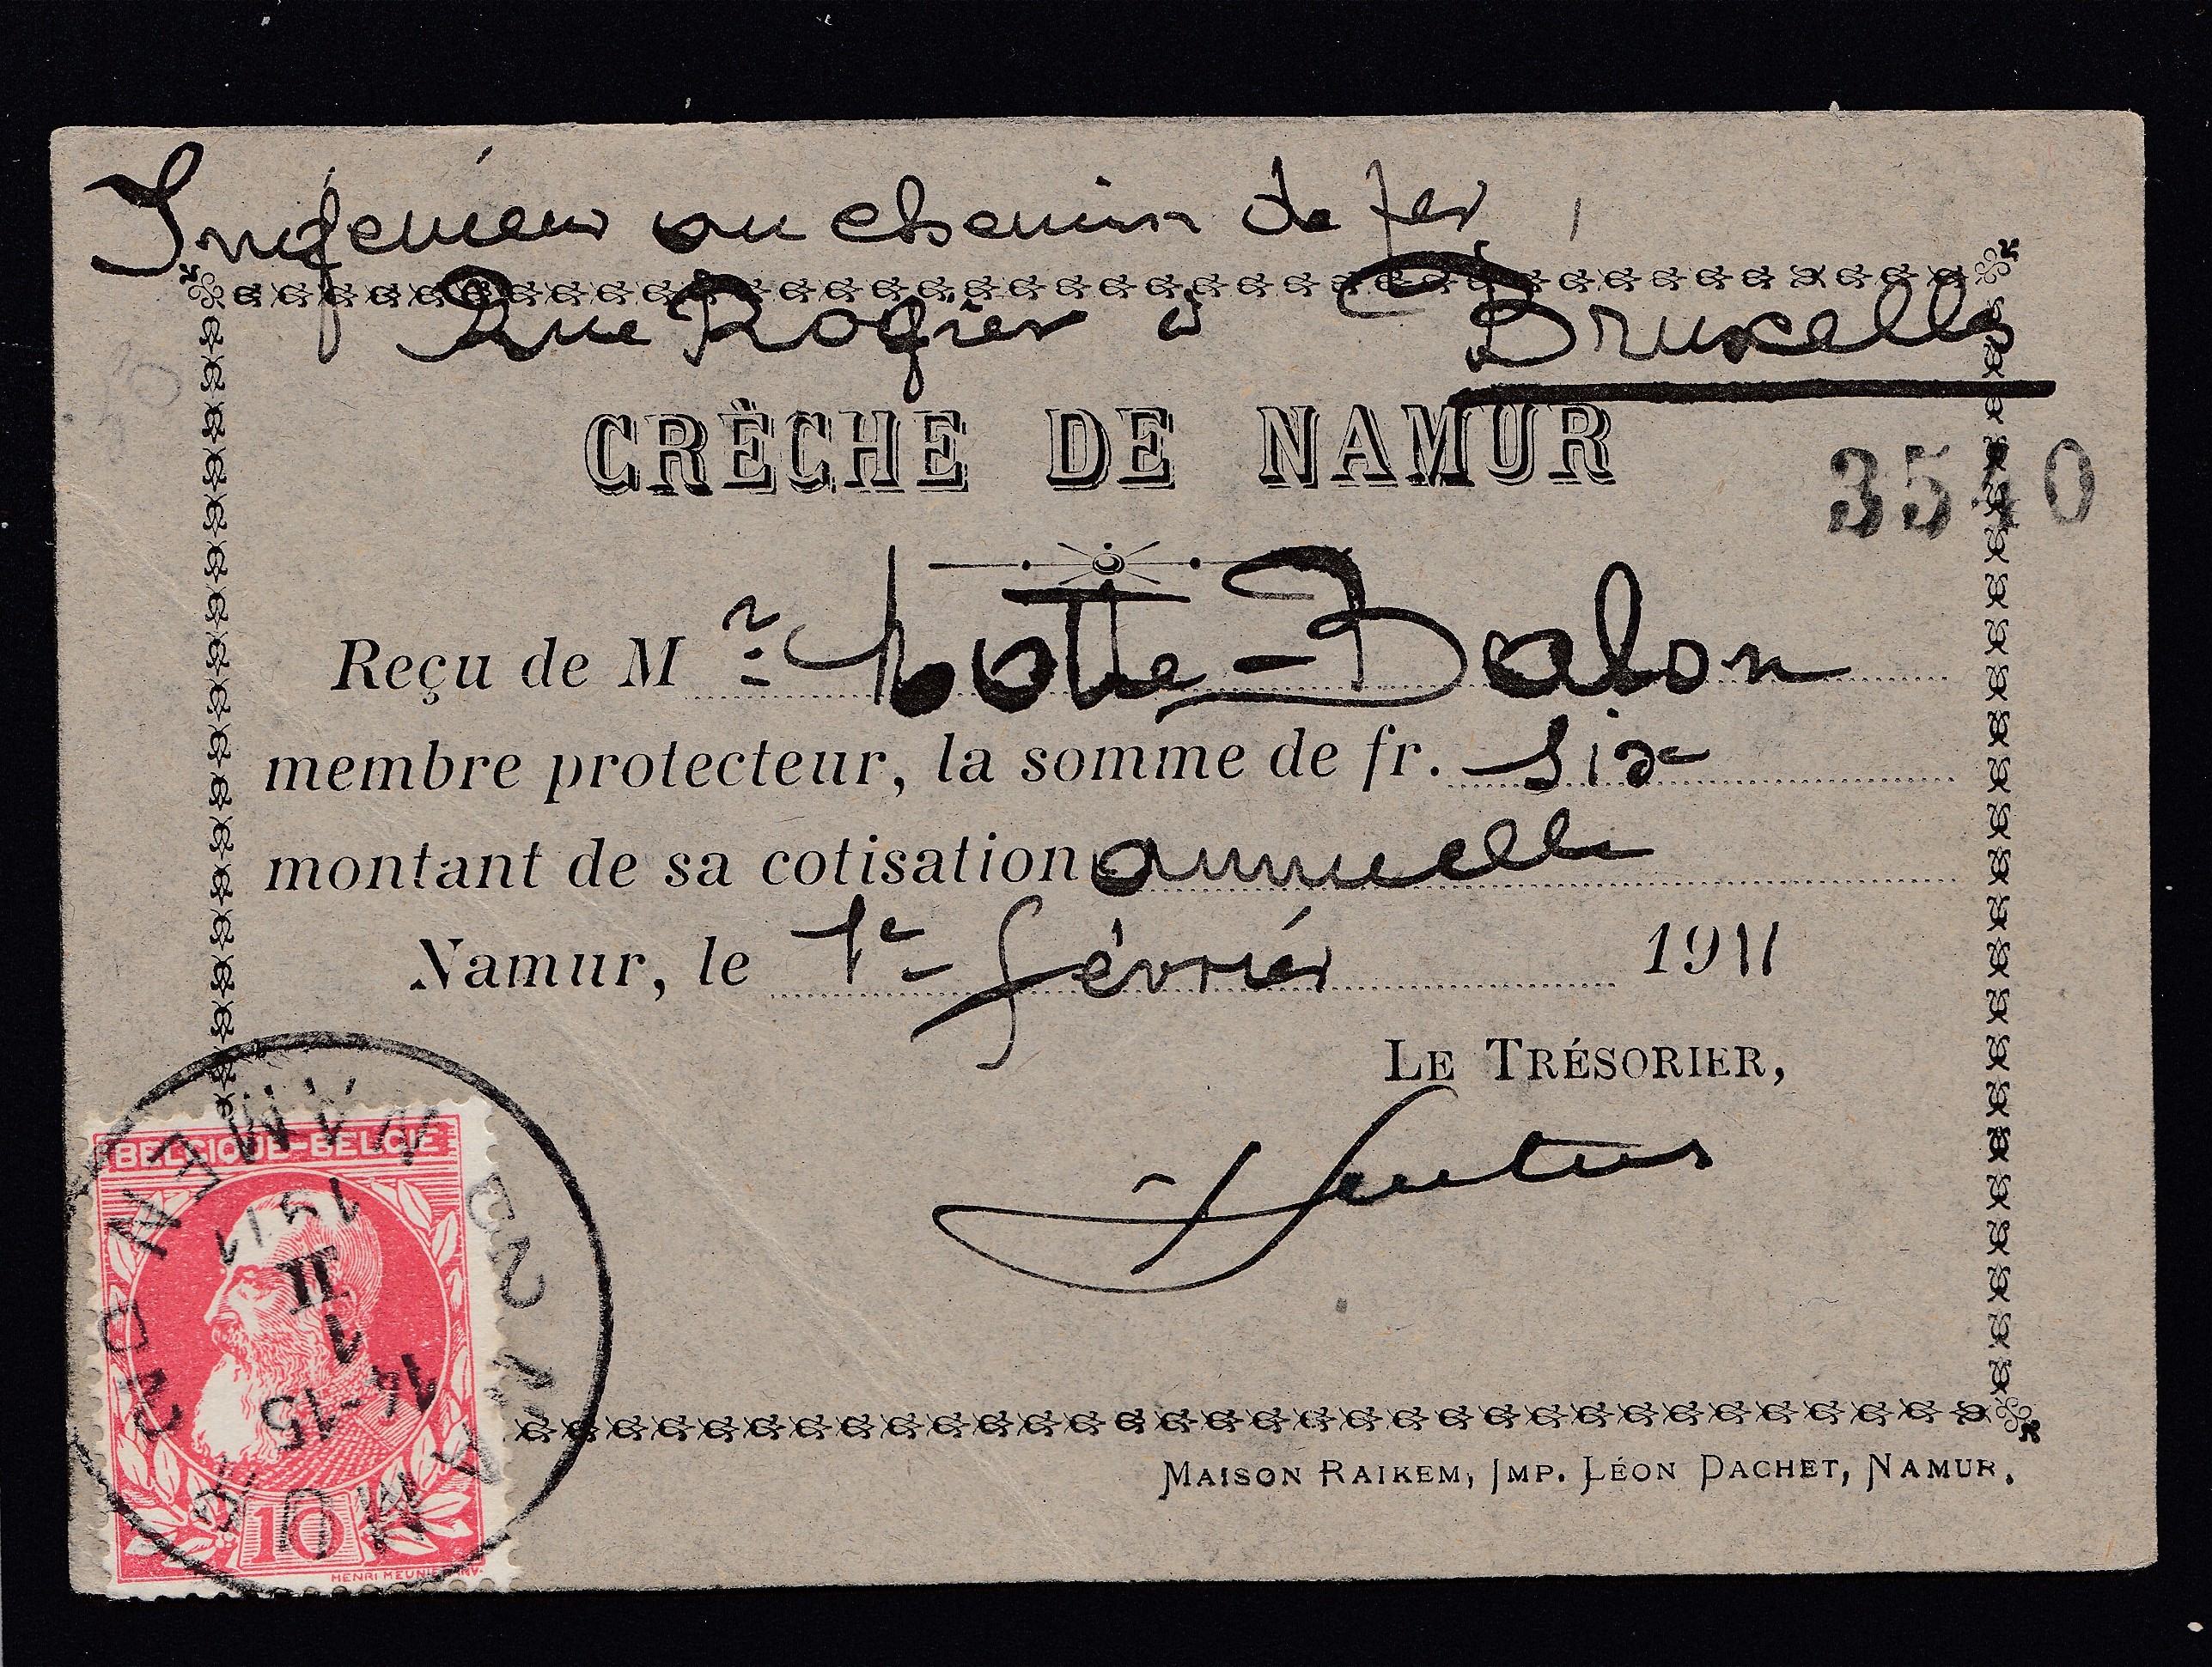 Ingénieur au chemin de fer,
Rue Rogier à Bruxelles
CRÈCHE DE NAMUR
3540
Reçu de Mr Motte-Balon
membre protecteur, la somme de fr. six
montant de sa cotisation annuelle
Namur, le 1r février 1911
LE TRÉSORIER,
MAISON RAIKEM, IMP. LÉON DACHET, NAMUR.
BELGIQUE-BELGIË
10
HENRI MEUNIER INV.
NAMUR
14-15
1
II
1911
NAMEN